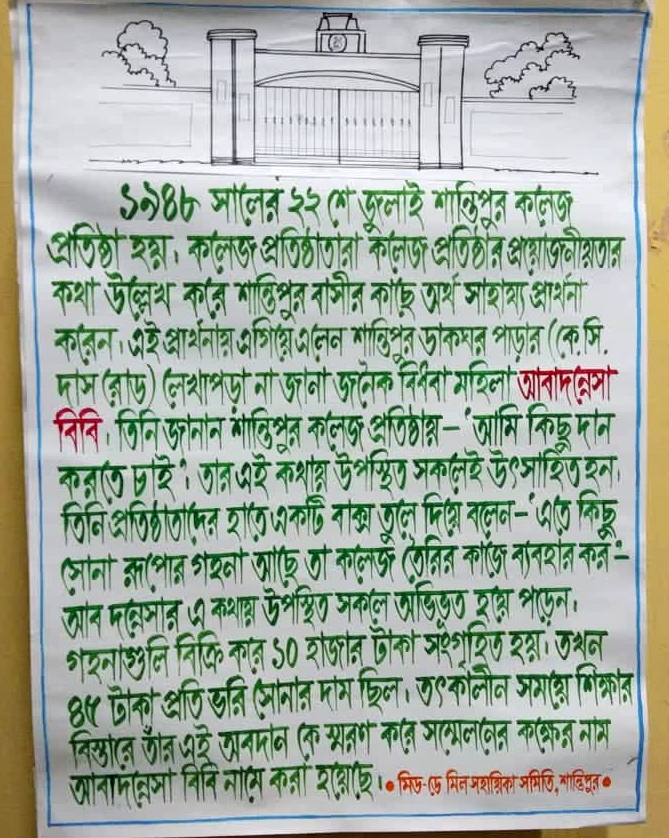 ১৯৪৮ সালের ২২ শে জুলাই শান্তিপুর কলেজ
প্রতিষ্ঠা হয়। কলেজ প্রতিষ্ঠাতারা কলেজ প্রতিষ্ঠার প্রয়োজনীয়তার
কথা উল্লেখ করে শান্তিপুর বাসীর কাছে অর্থ সাহায্য প্রার্থনা
করেন। এই প্রার্থনায় এগিয়ে এলেন শান্তিপুর ডাকঘর পাড়ার (কে.সি.
দাস রোড) লেখাপড়া না জানা জনৈক বিধবা মহিলা আবাদন্নেসা
বিবি। তিনি জানান শান্তিপুর কলেজ প্রতিষ্ঠায় – 'আমি কিছু দান
করতে চাই'। তার এই কথায় উপস্থিত সকলেই উৎসাহিত হন।
তিনি প্রতিষ্ঠাতাদের হাতে একটি বাক্স তুলে দিয়ে বলেন – 'এতে কিছু
সোনা রূপোর গহনা আছে তা কলেজ তৈরির কাজে ব্যবহার কর'-
আব দন্নেসার এ কথায় উপস্থিত সকলে অভিভূত হয়ে পড়েন।
গহনাগুলি বিক্রি কার ১০ হাজার টাকা সংগৃহিত হয়। তখন
৪৫ টাকা প্রতি ভরি সোনার দাম ছিল। তৎকালীন সময়ে শিক্ষার
বিস্তারে তাঁর এই অবদান কে স্মরণ করে সম্মেলনের কক্ষের নাম
আবাদন্নেসা বিবি নামে করা হয়েছে। • মিড-ডে মিল সহায়িকা সমিতি, শান্তিপুর •